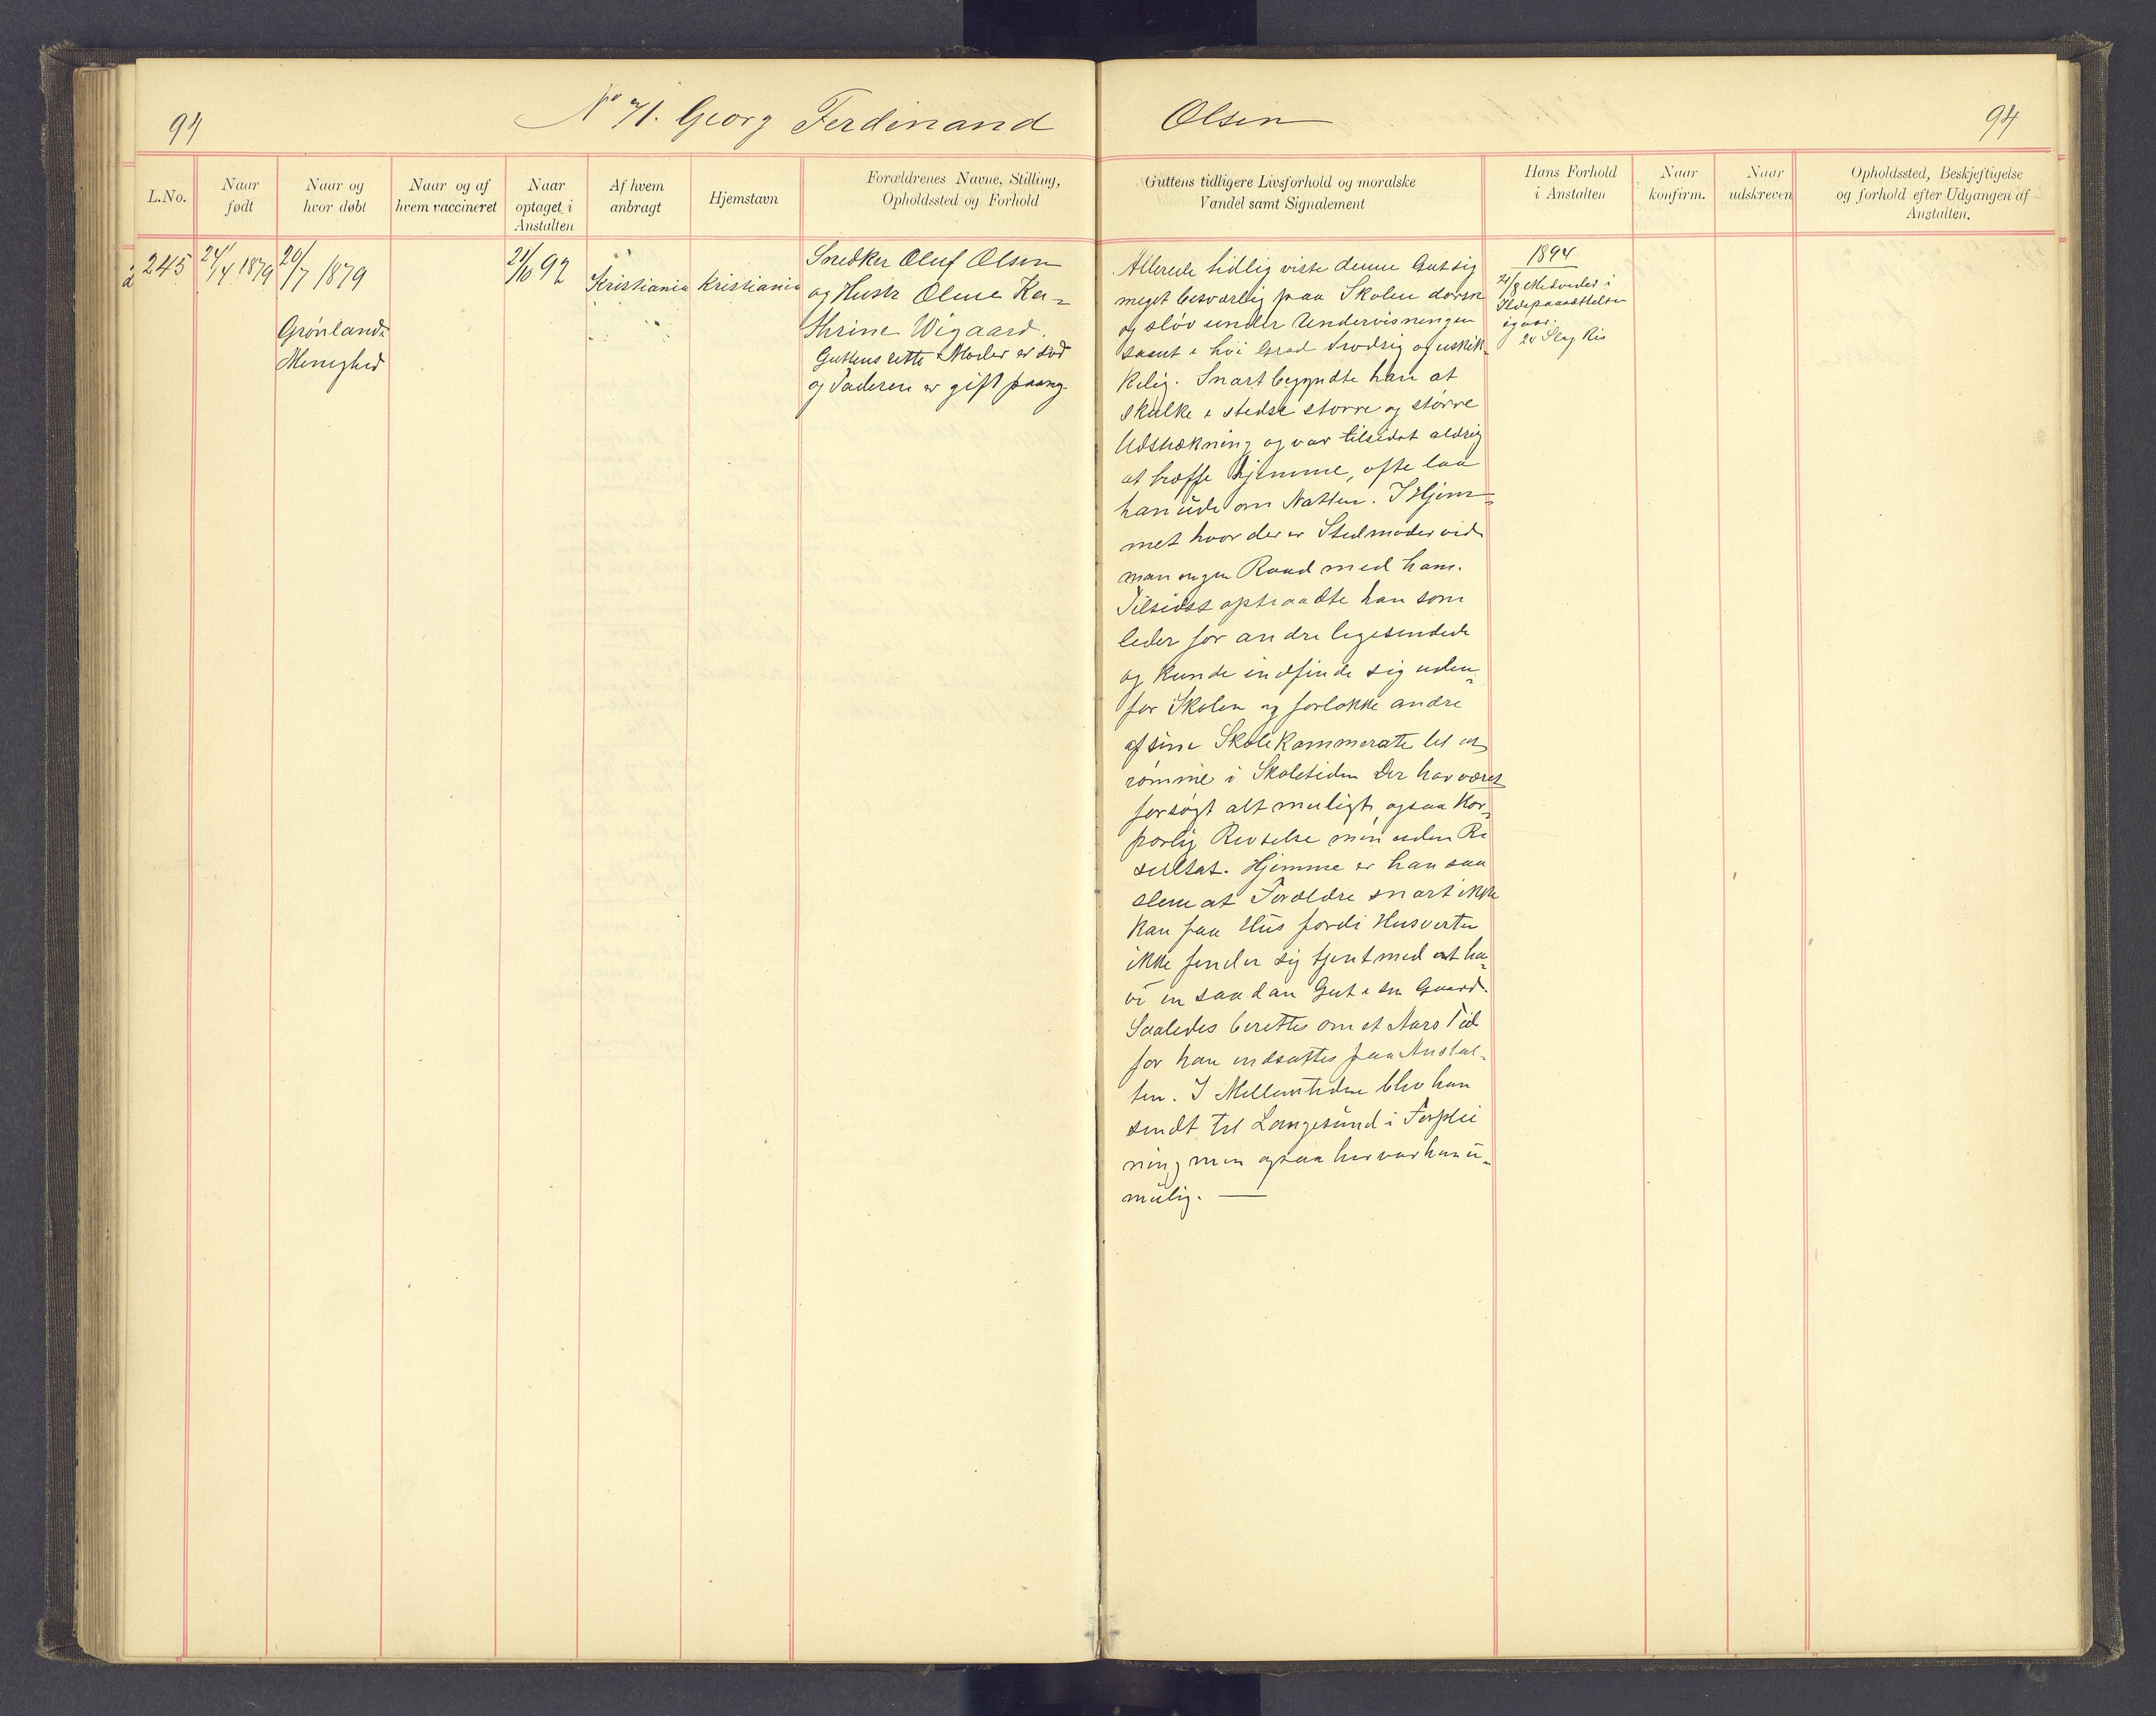 94
No 71. Georg Ferdinand Olsen
94
L.No.
Naar født
Naar og hvor døbt
Naar og af hvem vaccineret
Naar optaget i Anstalten
Af hvem anbragt
Hjemstavn
Forældrenes Navne, Stilling, Opholdssted og Forhold
Guttens tidligere Livsforhold og moralske Vandel samt Signalement
Hans Forhold i Anstalten
Naar konfirm.
Naar udskreven
Opholdssted, Beskjeftigelse og forhold efter Udgangen af Anstalten.
245
24/4 1879
20/7 1879
Grønlands
Menighed
21/10 92
Kristiania
Kristiania
Snedker Oluf Olsen
og Hustr Oline Ka-
thrine Wigaard.
Guttens rette Moder er død
og Faderen er gift paany.
Allerede tidlig viste denne Gut sig
meget besværlig paa Skolen dorsk
og sløv under Undervisningen
samt i høi Grad trodsig og uskik-
kelig. Snart begyndte han at
skulke i stedse større og større
Udstrækning og var tilsidst aldrig
at træffe hjemme, ofte laa
han ude om Natten. I Hjem-
met hvor der er Stedmoder ved
man ingen Raad med ham.
Tilsidst optraadte han som
leder for andre ligesindede
og kunde indfinde sig uden-
for Skolen og forlokke andre
af sine Skolekammerate til at
rømme i Skoletiden Der har været
forsøgt alt muligt, ogsaa Kor-
porlig Revselse men uden Re
sultat. Hjemme er han saa
slem at Forældre snart ikke
kan faa Hus fordi Husverten
ikke finder sig tjent med at ha-
ve en saadan Gut i sin Gaard.
Saaledes berettes om et Aars Tid
før han indsattes paa Anstal-
ten. I Mellemtiden blev han
sendt til Langesund i Forplei
ning men ogsaa her var han u-
mulig. —
1894
21/8 Medvider i
Ildspaasættelsen
igaar.
20 Slag Ris